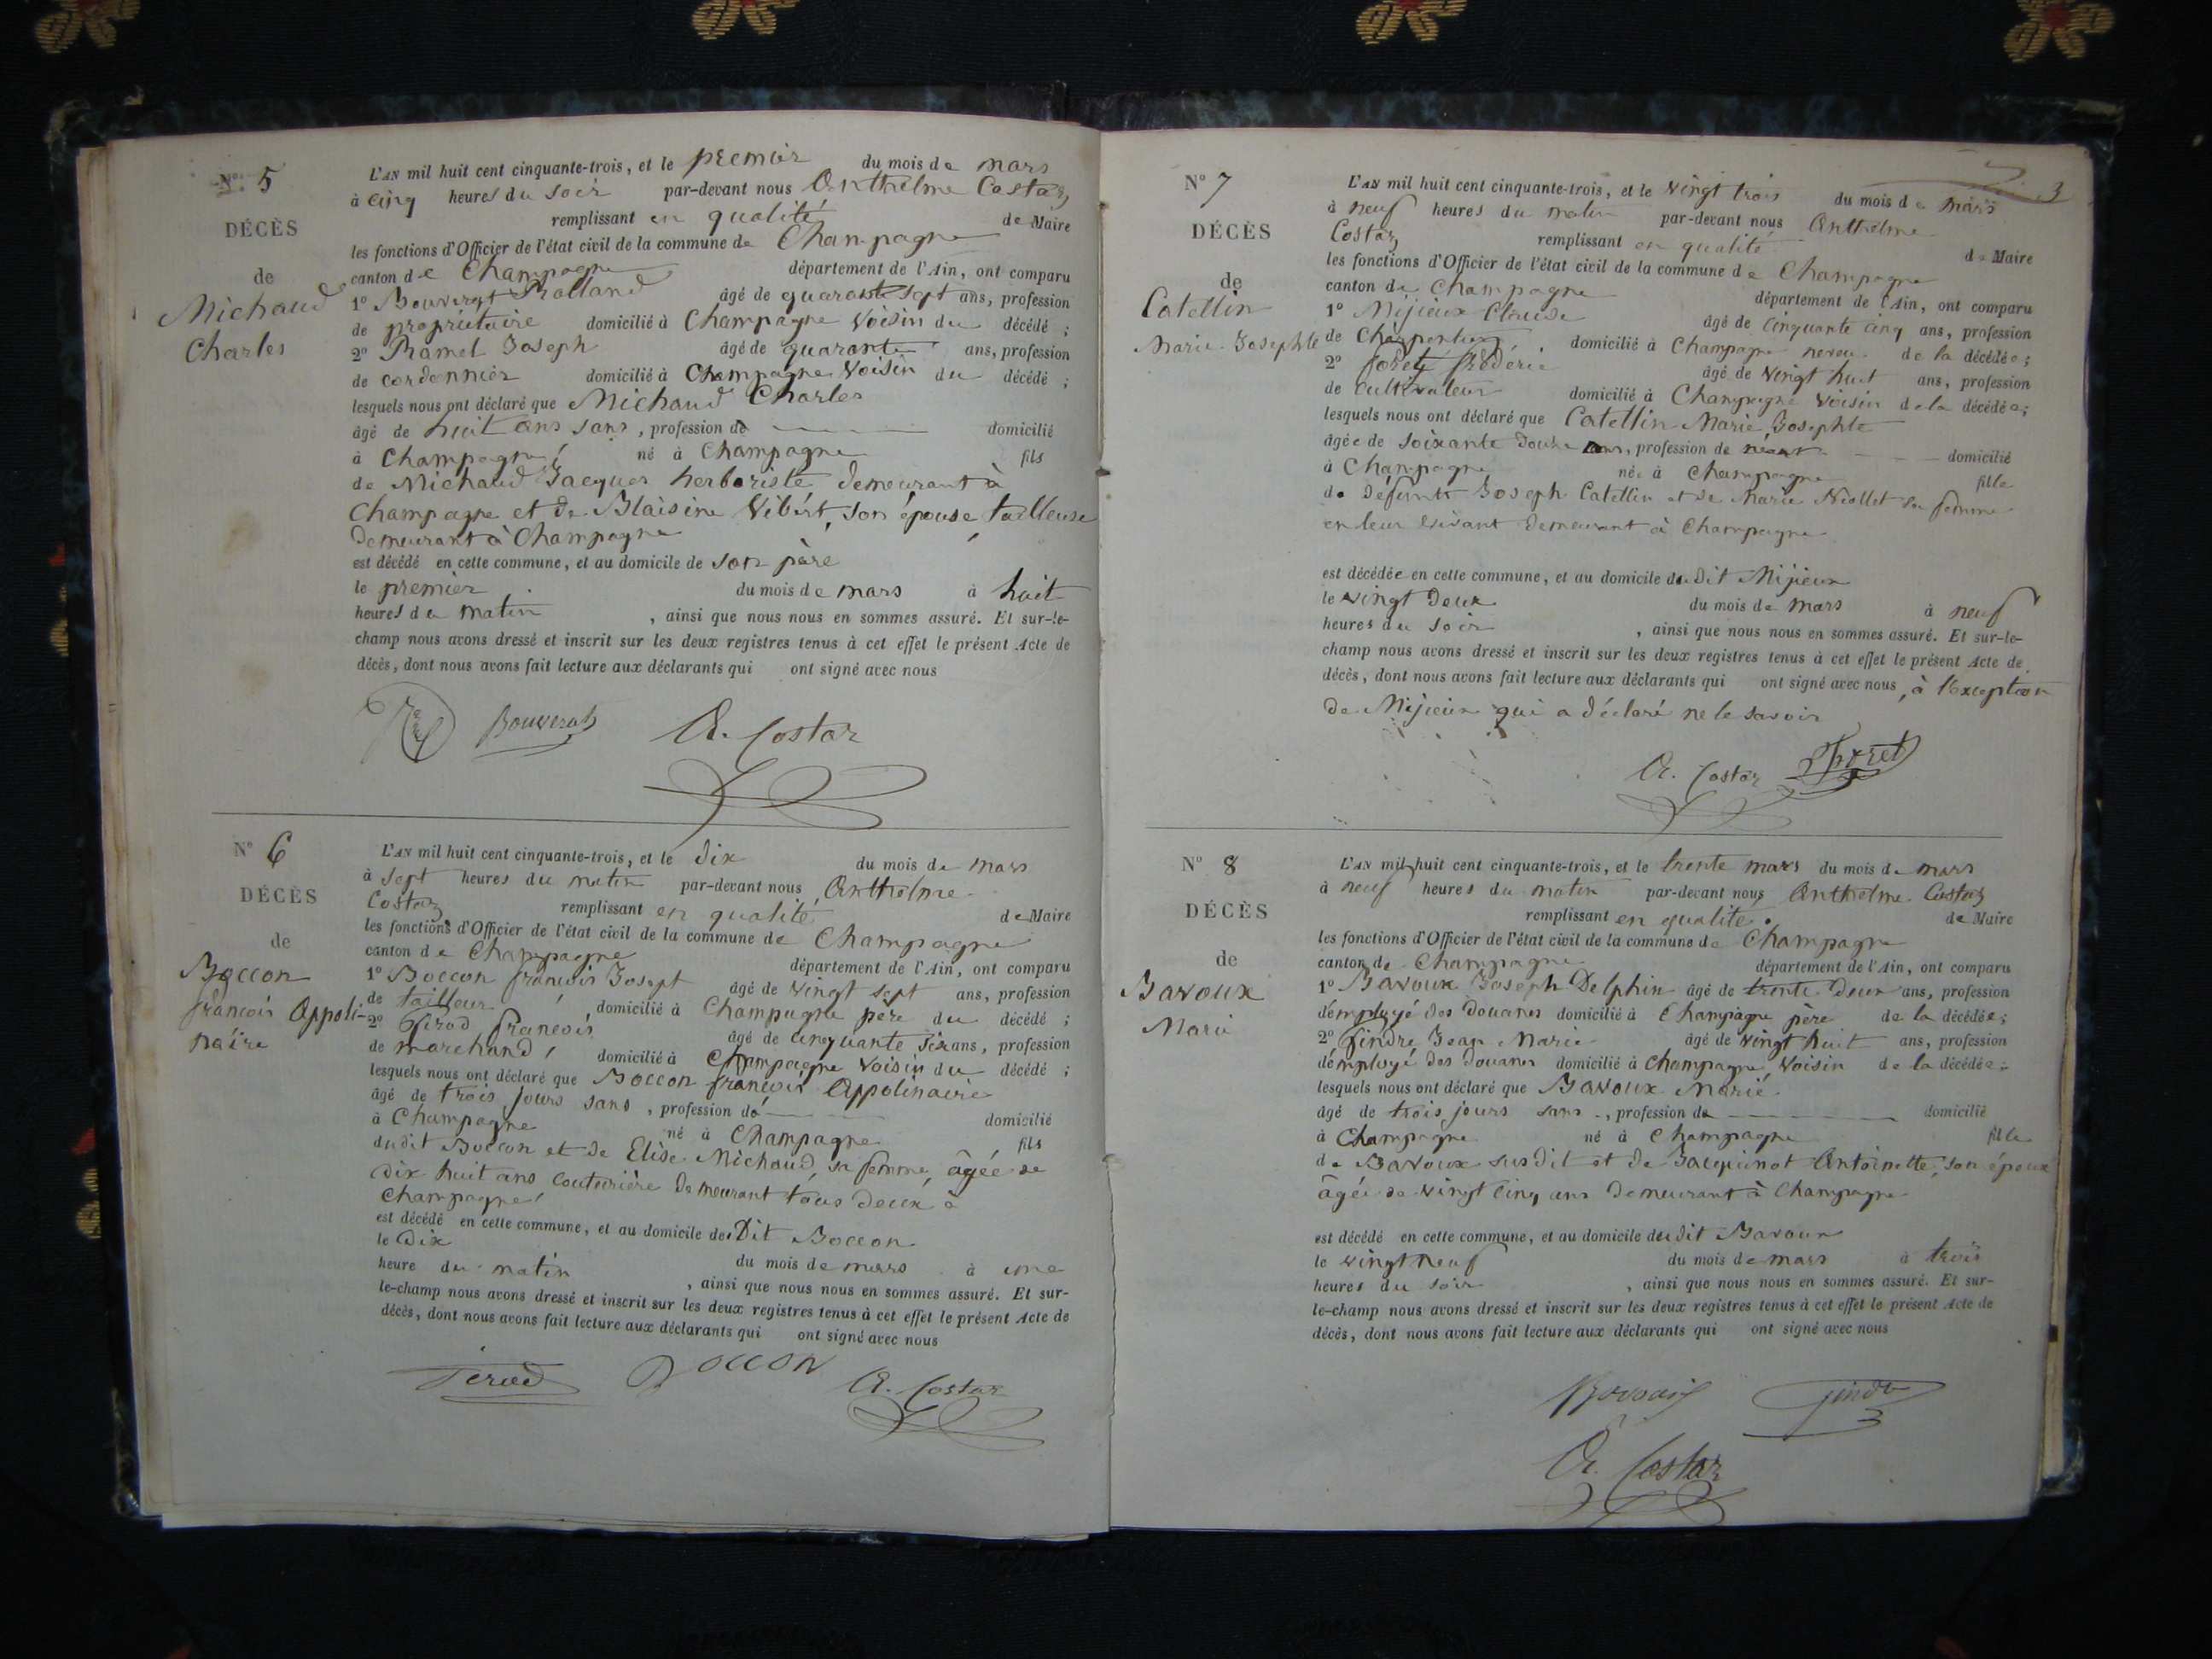 N° 5
DÉCÈS
de
Michaud
Charles
L'AN mil huit cent cinquante-trois, et le premier du mois de mars
à cinq heures du soir par-devant nous Anthelme Costaz
remplissant en qualité de Maire
les fonctions d'Officier de l'état civil de la commune de Champagne
canton de Champagne département de l'Ain, ont comparu
1° Bouverat Rolland âgé de quarante sept ans, profession
de propriétaire domicilié à Champagne voisin du décédé ;
2° Ramel Joseph âgé de quarante ans, profession
de cordonnier domicilié à Champagne voisin du décédé ;
lesquels nous ont déclaré que Michaud Charles
âgé de huit ans sans, profession de domicilié
à Champagne né à Champagne fils
de Michaud Jacques herboriste demeurant à
Champagne et de Blaisine Vibert, son épouse tailleuse
demeurant à Champagne
est décédé en cette commune, et au domicile de son père
le premier du mois de mars à huit
heures du matin, ainsi que nous nous en sommes assuré. Et sur-le-
champ nous avons dressé et inscrit sur les deux registres tenus à cet effet le présent Acte de
décès, dont nous avons fait lecture aux déclarants qui ont signé avec nous
Bouverat A. Costaz
N° 6
DÉCÈS
de
Boccon
françois Appoli-
naire
L'AN mil huit cent cinquante-trois, et le dix du mois de mars
à sept heures du matin par-devant nous Anthelme
Costaz remplissant en qualité de Maire
les fonctions d'Officier de l'état civil de la commune de Champagne
canton de Champagne département de l'Ain, ont comparu
1° Boccon françois Josept âgé de vingt sept ans, profession
de tailleur domicilié à Champagne père du décédé ;
2° Girod françois âgé de cinquante six ans, profession
de marchand domicilié à Champagne voisin du décédé ;
lesquels nous ont déclaré que Boccon françois Appolinaire
âgé de trois jours sans, profession de domicilié
à Champagne né à Champagne fils
dudit Boccon et de Elise Michaud, sa femme, âgée de
dix huit ans couturière demeurant tous deux à
Champagne
est décédé en cette commune, et au domicile du Dit Boccon
le dix du mois de mars à une
heure du matin, ainsi que nous nous en sommes assuré. Et sur-
le-champ nous avons dressé et inscrit sur les deux registres tenus à cet effet le présent Acte de
décès, dont nous avons fait lecture aux déclarants qui ont signé avec nous
Boccon A. Costaz
3
N° 7
DÉCÈS
de
Catellin
Marie-Josephte
L'AN mil huit cent cinquante-trois, et le vingt trois du mois de mars
à neuf heures du matin par-devant nous Anthelme
Costaz remplissant en qualité de Maire
les fonctions d'Officier de l'état civil de la commune de Champagne
canton de Champagne département de l'Ain, ont comparu
1° Mijieux Claude âgé de cinquante cinq ans, profession
de Charpentier, domicilié à Champagne neveu de la décédée ;
2° foret frédéric âgé de vingt huit ans, profession
de cultivateur domicilié à Champagne voisin de la décédée ;
lesquels nous ont déclaré que Catellin Marie Josephte
âgée de soixante douze ans, profession de néant domicilié
à Champagne née à Champagne fille
de défunts Joseph Catellin et de Marie Niollet sa femme
en leur vivant demeurant à Champagne
est décédée en cette commune, et au domicile du dit Mijieux
le vingt deux du mois de mars à neuf
heures du soir, ainsi que nous nous en sommes assuré. Et sur-le-
champ nous avons dressé et inscrit sur les deux registres tenus à cet effet le présent Acte de
décès, dont nous avons fait lecture aux déclarants qui ont signé avec nous, à l'exception
de Mijieux qui a déclaré ne le savoir
A. Costaz foret
N° 8
DÉCÈS
de
Bavoux
Marie
L'AN mil huit cent cinquante-trois, et le trente mars du mois de mars
à neuf heures du matin par-devant nous Anthelme Costaz
remplissant en qualité de Maire
les fonctions d'Officier de l'état civil de la commune de Champagne
canton de Champagne département de l'Ain, ont comparu
1° Bavoux Joseph Delphin âgé de trente deux ans, profession
d'employé des douanes domicilié à Champagne père de la décédée ;
2° Gindre Jean Marie âgé de vingt huit ans, profession
d'employé des douanes domicilié à Champagne, voisin de la décédée ;
lesquels nous ont déclaré que Bavoux Marie
âgé de trois jours sans, profession de domicilié
à Champagne né à Champagne fille
de Bavoux susdit et de Jacquinot Antoinette, son épouse
âgée de vingt cinq ans demeurant à Champagne
est décédé en cette commune, et au domicile du dit Bavoux
le vingt neuf du mois de mars à trois
heures du soir, ainsi que nous nous en sommes assuré. Et sur-
le-champ nous avons dressé et inscrit sur les deux registres tenus à cet effet le présent Acte de
décès, dont nous avons fait lecture aux déclarants qui ont signé avec nous
Bavoux Gindre
A. Costaz